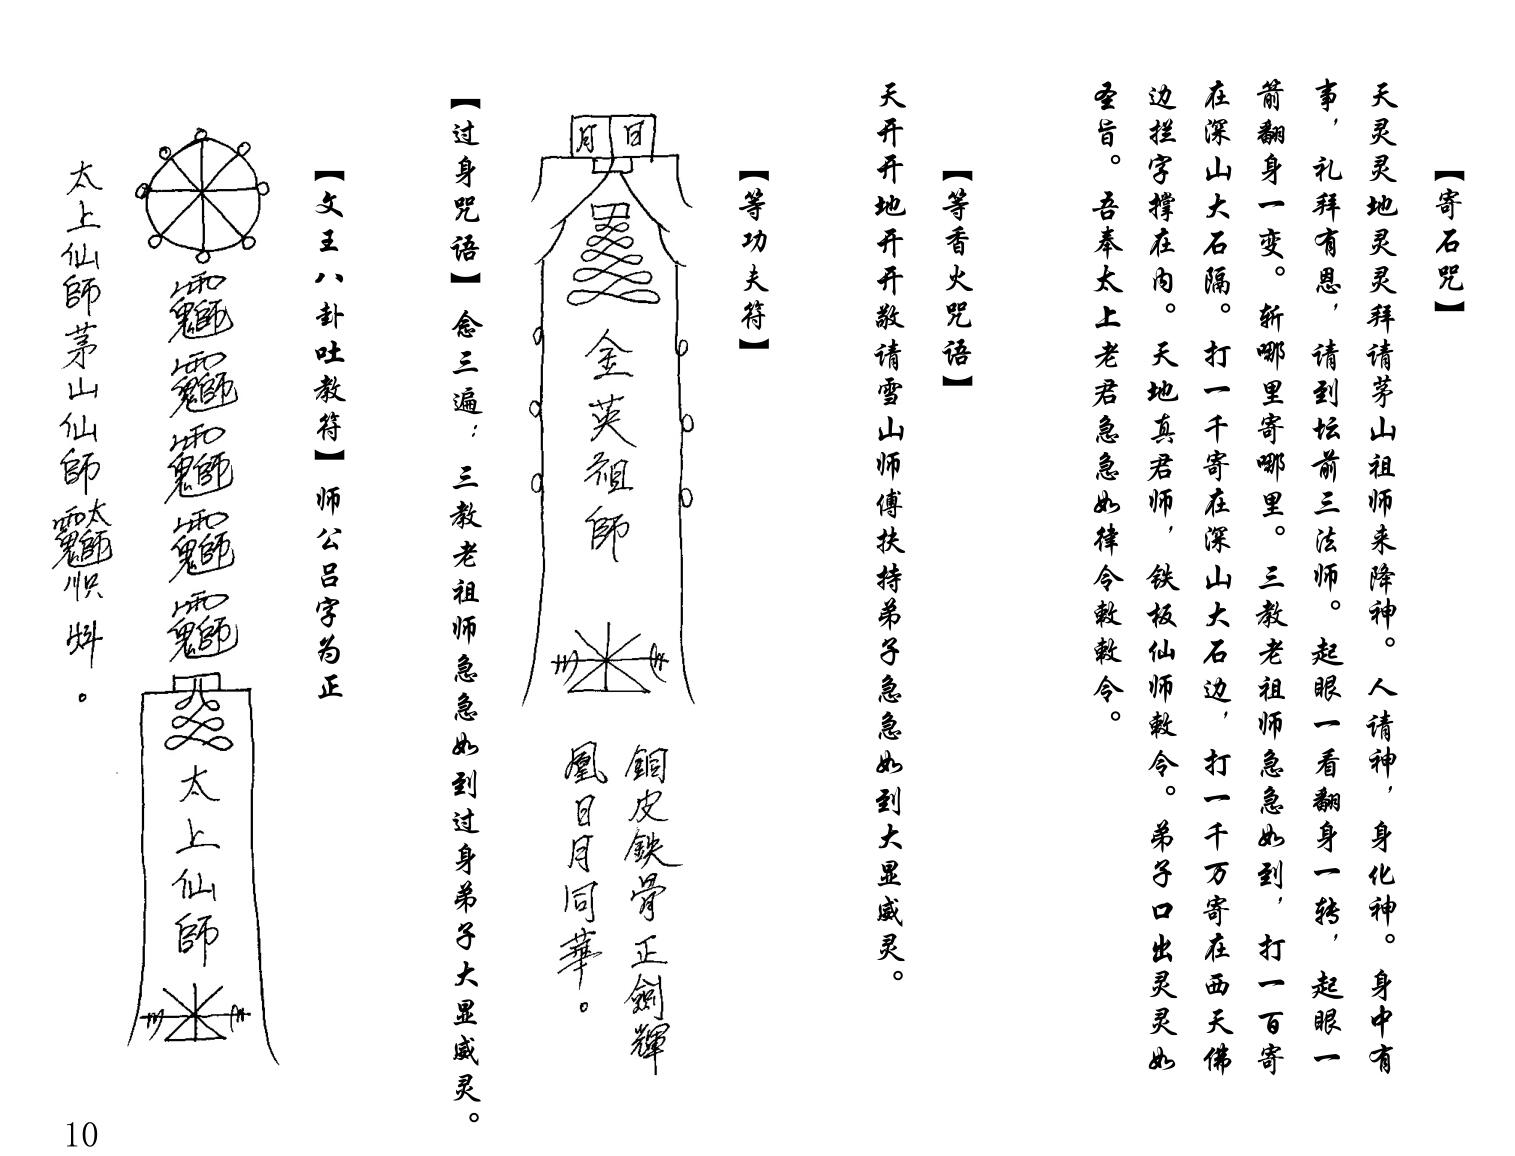 【寄石咒】
天灵灵地灵灵拜请茅山祖师来降神。人请神，身化神。身中有
事，礼拜有恩，请到坛前三法师。起眼一看翻身一转，起眼一
箭翻身一变。斩哪里寄哪里。三教老祖师急急如到，打一百寄
在深山大石隔。打一千寄在深山大石边，打一千万寄在西天佛
边拦字撑在内。天地真君师，铁板仙师敕令。弟子口出灵灵如
圣旨。吾奉太上老君急急如律令敕敕令。
【等香火咒语】
天开开地开开敬请雪山师傅扶持弟子急急如到大显威灵。
【等功夫符】
日月
金英祖師
銅皮鉄骨正劍輝
凰日月同華。
【过身咒语】念三遍：三教老祖师急急如到过身弟子大显威灵。
【文王八卦吐教符】师公吕字为正
太上仙師
太上仙師茅山仙師
10